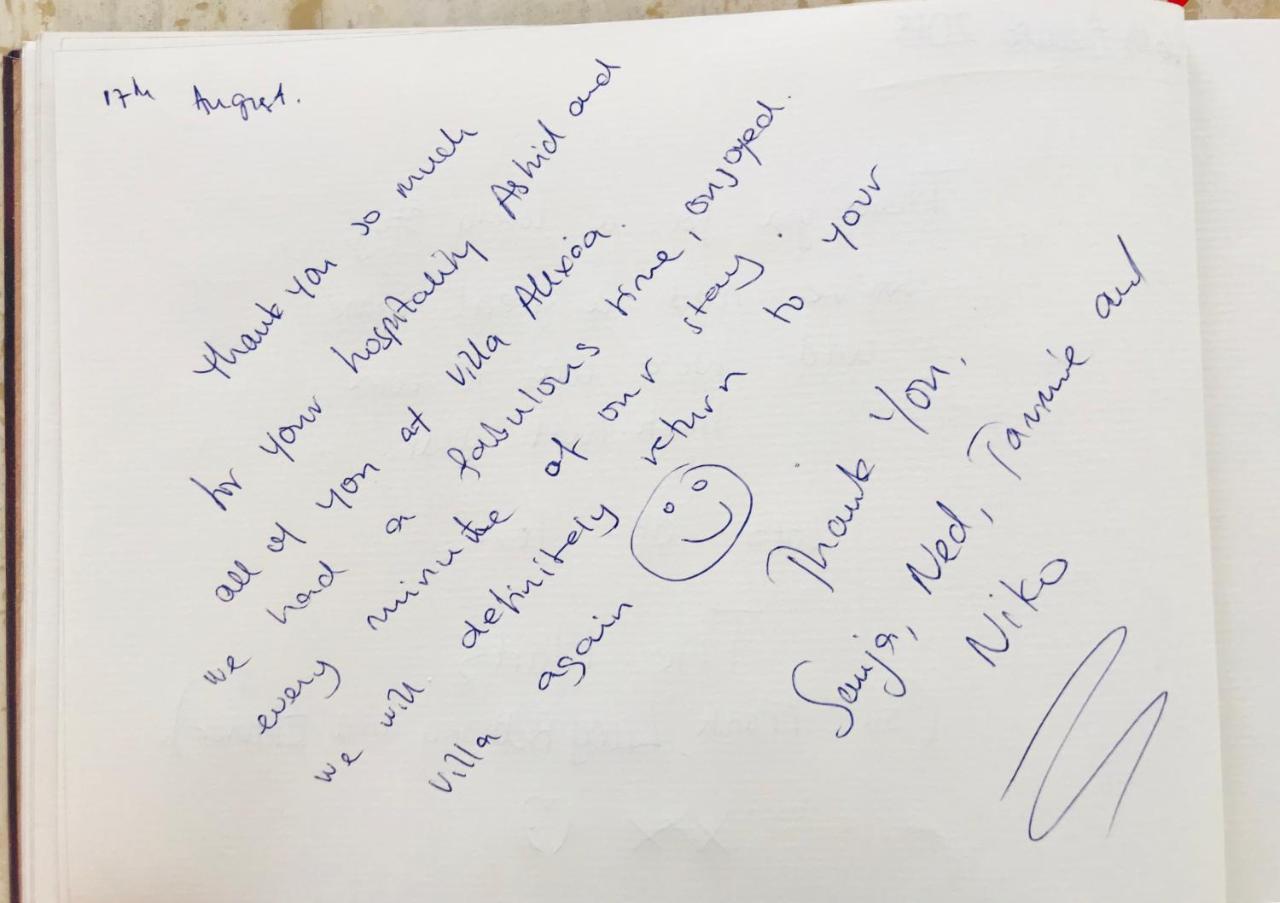 17th August.
Thank you so much
for your hospitality Ashid and
all of you at villa Alexia.
we had a fabulous time, enjoyed.
every minute of our stay.
we will definitely return to your
villa again
Thank You.
Sanja, Ned, Tasmine and
Niko